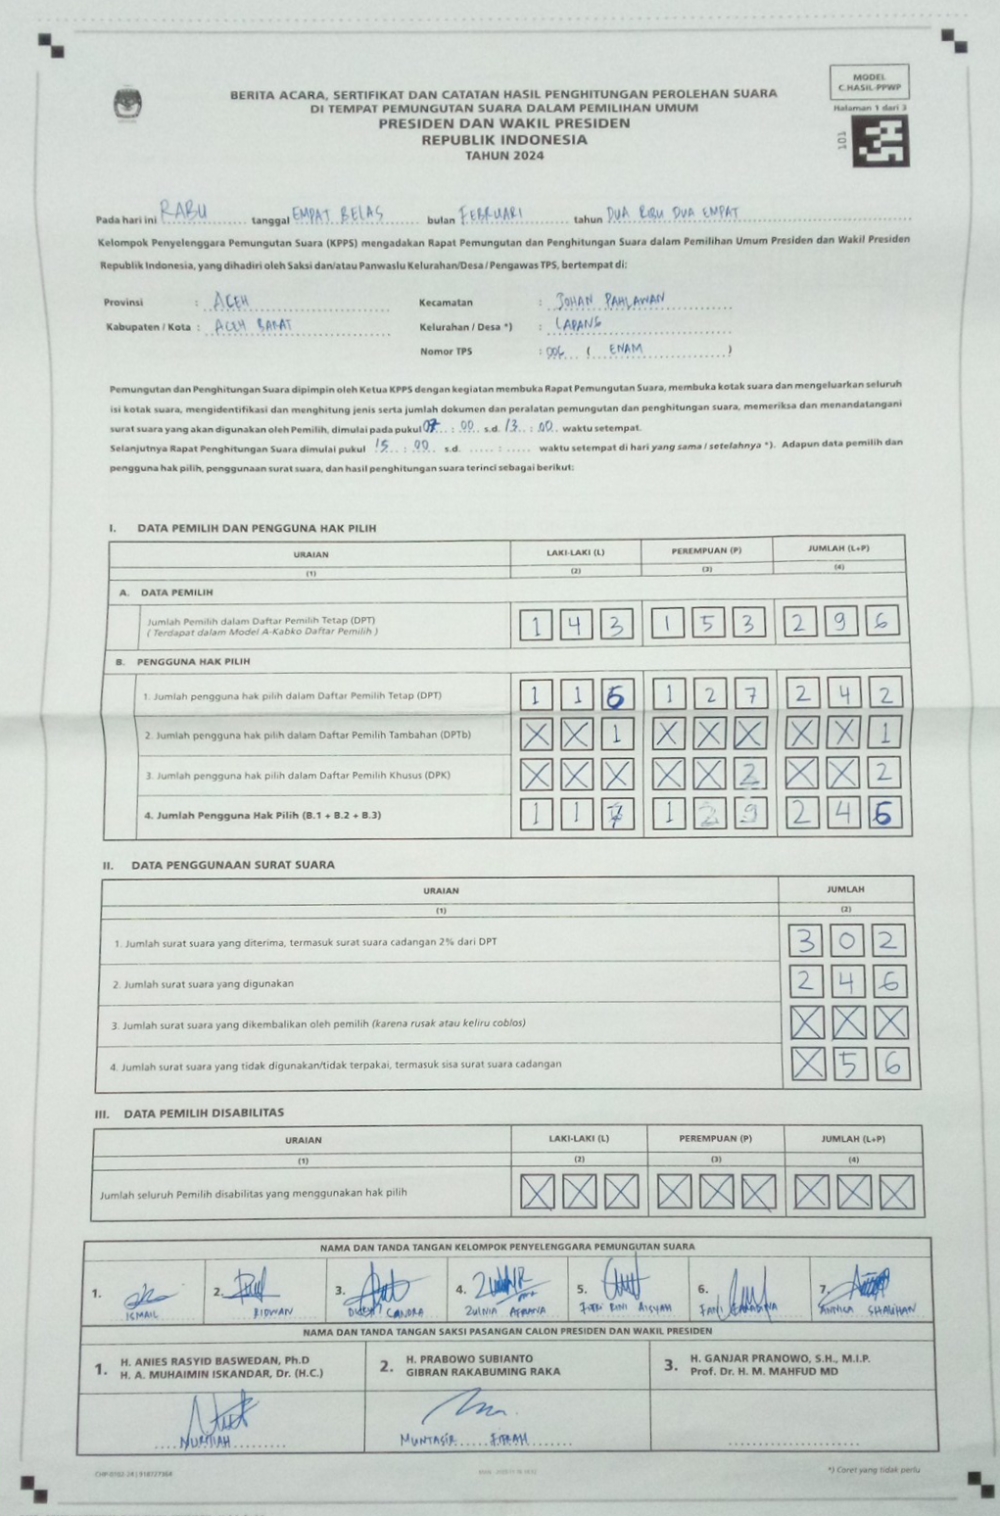 MODEL
C.HASIL-PPWP
Halaman 1 dari 3
101
BERITA ACARA, SERTIFIKAT DAN CATATAN HASIL PENGHITUNGAN PEROLEHAN SUARA
DI TEMPAT PEMUNGUTAN SUARA DALAM PEMILIHAN UMUM
PRESIDEN DAN WAKIL PRESIDEN
REPUBLIK INDONESIA
TAHUN 2024
Pada hari ini RABU tanggal EMPAT BELAS bulan FEBRUARI tahun DUA RIBU DUA EMPAT
Kelompok Penyelenggara Pemungutan Suara (KPPS) mengadakan Rapat Pemungutan dan Penghitungan Suara dalam Pemilihan Umum Presiden dan Wakil Presiden
Republik Indonesia, yang dihadiri oleh Saksi dan/atau Panwaslu Kelurahan/Desa/Pengawas TPS, bertempat di:
Provinsi : ACEH Kecamatan : JOHAN PAHLAWAN
Kabupaten / Kota : ACEH BARAT Kelurahan / Desa *) : LAPANG
Nomor TPS : 006 ( ENAM )
Pemungutan dan Penghitungan Suara dipimpin oleh Ketua KPPS dengan kegiatan membuka Rapat Pemungutan Suara, membuka kotak suara dan mengeluarkan seluruh
isi kotak suara, mengidentifikasi dan menghitung jenis serta jumlah dokumen dan peralatan pemungutan dan penghitungan suara, memeriksa dan menandatangani
surat suara yang akan digunakan oleh Pemilih, dimulai pada pukul 07 : 00 s.d. 13 : 00 waktu setempat.
Selanjutnya Rapat Penghitungan Suara dimulai pukul 15 : 00 s.d. ..... : ..... waktu setempat di hari yang sama / setelahnya *). Adapun data pemilih dan
pengguna hak pilih, penggunaan surat suara, dan hasil penghitungan suara terinci sebagai berikut:
I. DATA PEMILIH DAN PENGGUNA HAK PILIH
URAIAN LAKI-LAKI (L) PEREMPUAN (P) JUMLAH (L+P)
(1) (2) (3) (4)
A. DATA PEMILIH
Jumlah Pemilih dalam Daftar Pemilih Tetap (DPT) 1 4 3 1 5 3 2 9 6
( Terdapat dalam Model A-Kabko Daftar Pemilih )
B. PENGGUNA HAK PILIH
1. Jumlah pengguna hak pilih dalam Daftar Pemilih Tetap (DPT) 1 1 5 1 2 7 2 4 2
2. Jumlah pengguna hak pilih dalam Daftar Pemilih Tambahan (DPTb) X X 1 X X X X X 1
3. Jumlah pengguna hak pilih dalam Daftar Pemilih Khusus (DPK) X X X X X 2 X X 2
4. Jumlah Pengguna Hak Pilih (B.1 + B.2 + B.3) 1 1 7 1 2 9 2 4 6
II. DATA PENGGUNAAN SURAT SUARA
URAIAN JUMLAH
(1) (2)
1. Jumlah surat suara yang diterima, termasuk surat suara cadangan 2% dari DPT 3 0 2
2. Jumlah surat suara yang digunakan 2 4 6
3. Jumlah surat suara yang dikembalikan oleh pemilih (karena rusak atau keliru coblos) X X X
4. Jumlah surat suara yang tidak digunakan/tidak terpakai, termasuk sisa surat suara cadangan X 5 6
III. DATA PEMILIH DISABILITAS
URAIAN LAKI-LAKI (L) PEREMPUAN (P) JUMLAH (L+P)
(1) (2) (3) (4)
Jumlah seluruh Pemilih disabilitas yang menggunakan hak pilih X X X X X X X X X
NAMA DAN TANDA TANGAN KELOMPOK PENYELENGGARA PEMUNGUTAN SUARA
1. 2. 3. 4. 5. 6. 7.
ISMAIL RIDWAN CANDRA ZULNIA AFRIANA RINI AISYAH
NAMA DAN TANDA TANGAN SAKSI PASANGAN CALON PRESIDEN DAN WAKIL PRESIDEN
1. H. ANIES RASYID BASWEDAN, Ph.D
H. A. MUHAIMIN ISKANDAR, Dr. (H.C.)
2. H. PRABOWO SUBIANTO
GIBRAN RAKABUMING RAKA
3. H. GANJAR PRANOWO, S.H., M.I.P.
Prof. Dr. H. M. MAHFUD MD
MUNTASIR FITRAH
*) Coret yang tidak perlu